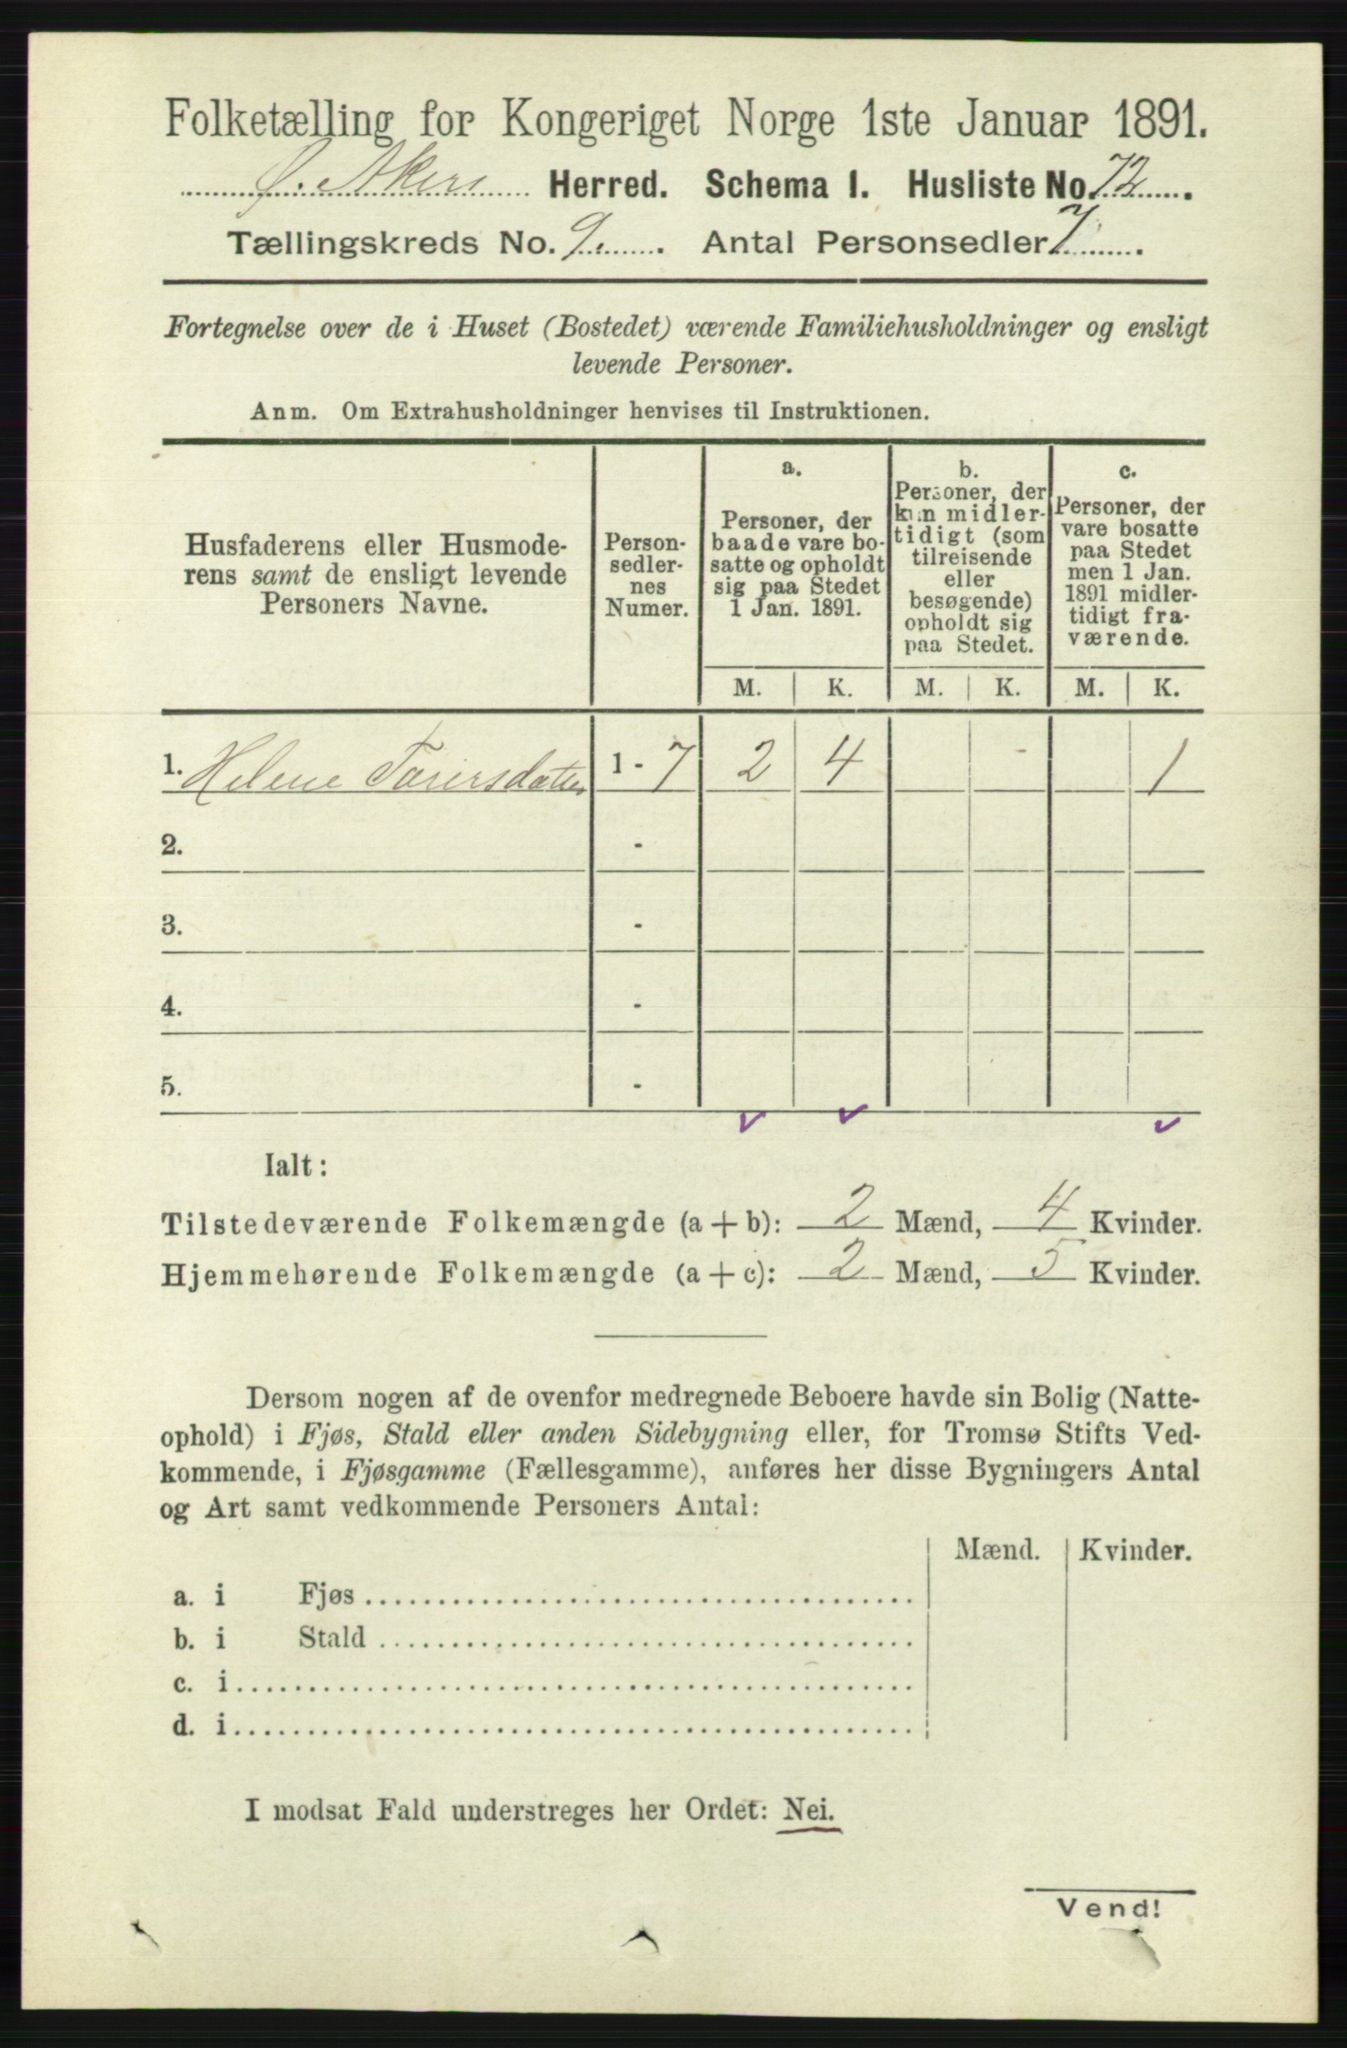 Folketælling for Kongeriget Norge 1ste Januar 1891.
Ø. Akers Herred. Schema 1. Husliste No. 72.
Tællingskreds No. 9. Antal Personsedler 7.
Fortegnelse over de i Huset (Bostedet) værende Familiehusholdninger og ensligt
levende Personer.
Anm. Om Extrahusholdninger henvises til Instruktionen.
Husfaderens eller Husmode-
rens samt de ensligt levende
Personers Navne.
Person-
sedler-
nes
Numer.
a.
Personer, der
baade vare bo-
satte og opholdt
sig paa Stedet
1 Jan. 1891.
b.
Personer, der
kun midler-
tidigt (som
tilreisende
eller
besøgende)
opholdt sig
paa Stedet.
c.
Personer, der
vare bosatte
paa Stedet
men 1 Jan.
1891 midler-
tidigt fra-
værende.
M. K. M. K. M. K.
1. Helene 1 - 7 2 4 1
2. -
3. -
4. -
5. -
Ialt:
Tilstedeværende Folkemængde (a + b): 2 Mænd, 4 Kvinder.
Hjemmehørende Folkemængde (a + c): 2 Mænd, 5 Kvinder.
Dersom nogen af de ovenfor medregnede Beboere havde sin Bolig (Natte-
ophold) i Fjøs, Stald eller anden Sidebygning eller, for Tromsø Stifts Ved-
kommende, i Fjøsgamme (Fællesgamme), anføres her disse Bygningers Antal
og Art samt vedkommende Personers Antal:
Mænd. Kvinder.
a. i Fjøs
b. i Stald
c. i
d. i
I modsat Fald understreges her Ordet: Nei.
Vend!